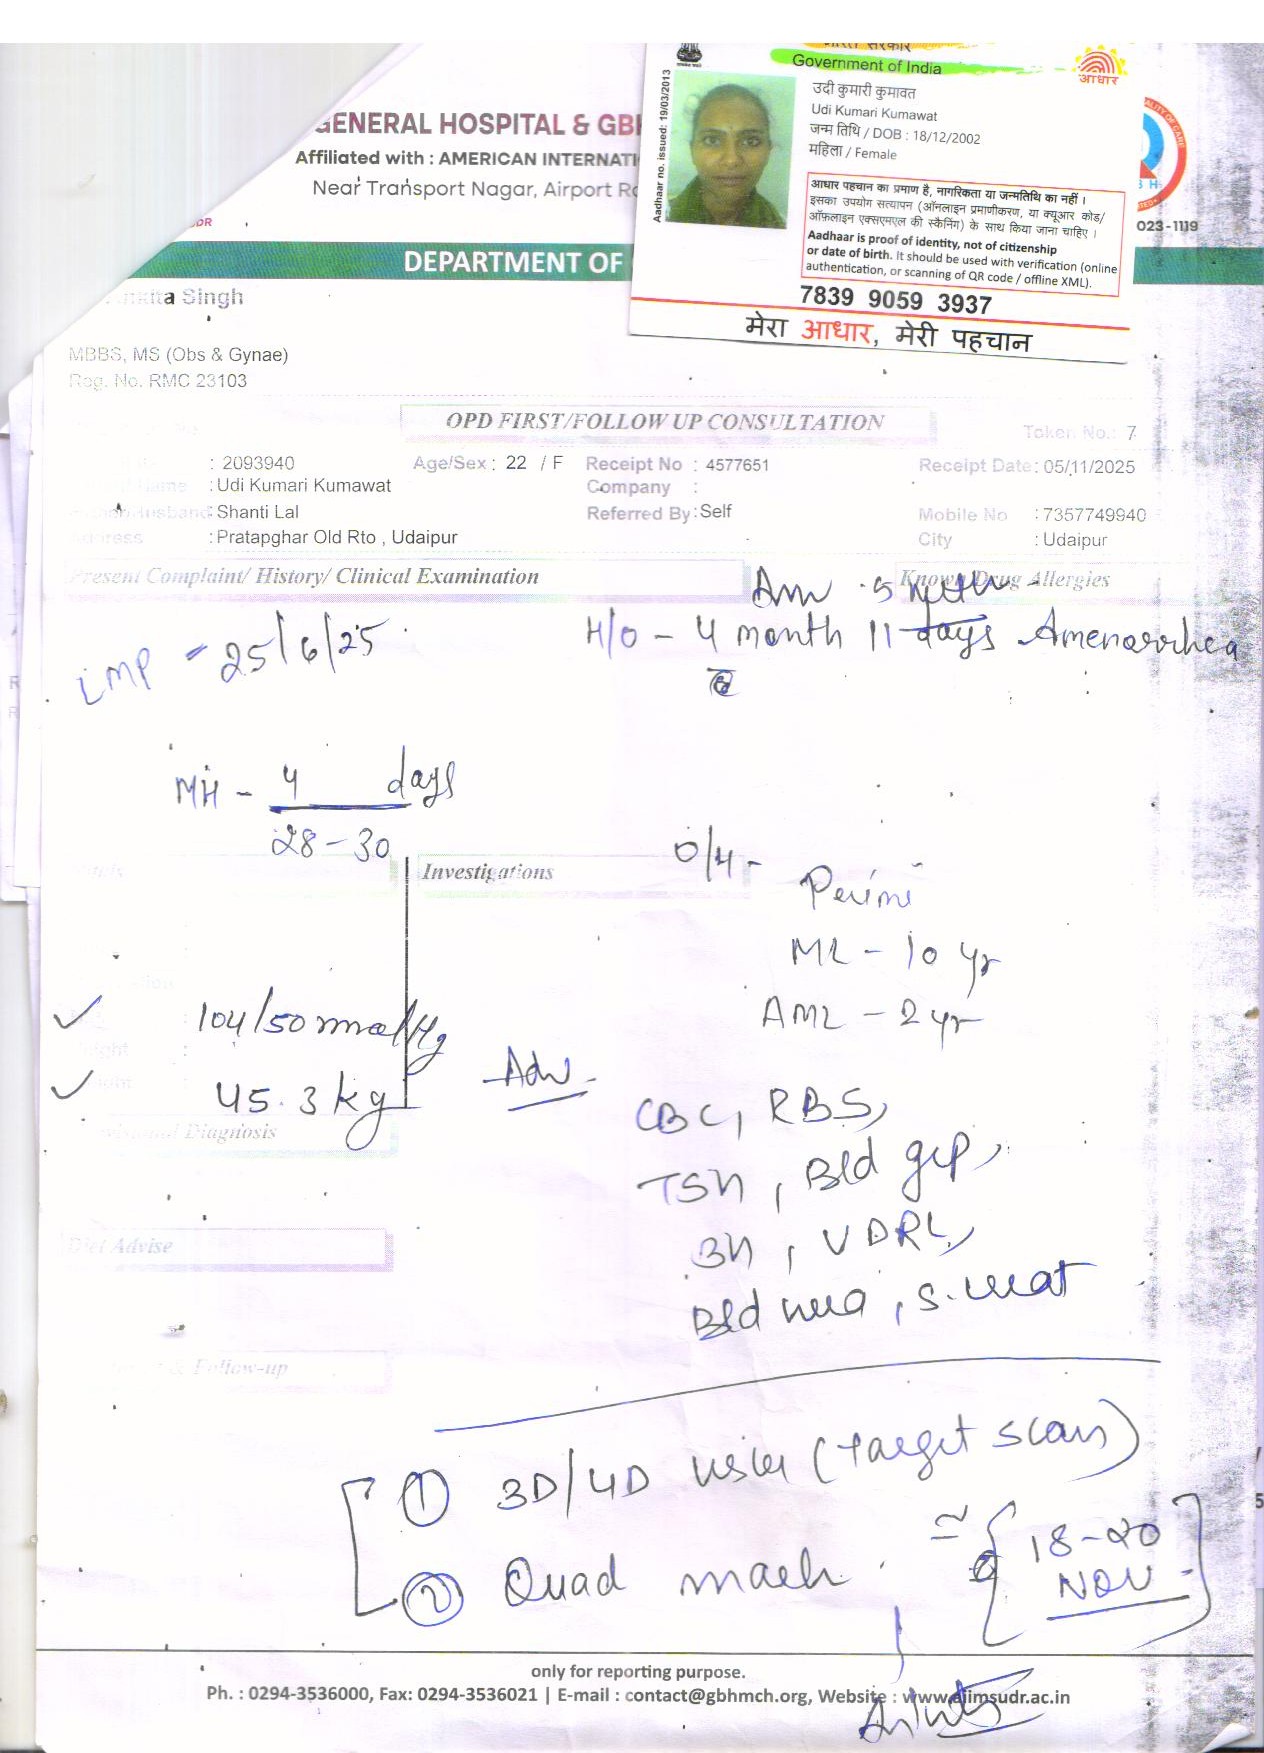 GENERAL HOSPITAL & GBH
Affiliated with : AMERICAN INTERNATI
Near Transport Nagar, Airport Ro
DEPARTMENT OF
भारत सरकार
Government of India
आधार
Aadhaar no. issued: 19/03/2013
उदी कुमारी कुमावत
Udi Kumari Kumawat
जन्म तिथि / DOB : 18/12/2002
महिला / Female
आधार पहचान का प्रमाण है, नागरिकता या जन्मतिथि का नहीं ।
इसका उपयोग सत्यापन (ऑनलाइन प्रमाणीकरण, या क्यूआर कोड/
ऑफ़लाइन एक्सएमएल की स्कैनिंग) के साथ किया जाना चाहिए ।
Aadhaar is proof of identity, not of citizenship
or date of birth. It should be used with verification (online
authentication, or scanning of QR code / offline XML).
7839 9059 3937
मेरा आधार, मेरी पहचान
023-1119
Singh
MBBS, MS (Obs & Gynae)
Reg. No. RMC 23103
OPD FIRST/FOLLOW UP CONSULTATION
Token No.: 7
: 2093940 Age/Sex : 22 / F Receipt No : 4577651 Receipt Date: 05/11/2025
Name : Udi Kumari Kumawat Company :
Husband: Shanti Lal Referred By: Self Mobile No : 7357749940
Address : Pratapghar Old Rto , Udaipur City : Udaipur
Present Complaint/ History/ Clinical Examination Known Drug Allergies
H/O - 4 month 11 days Amenorrhea
LMP - 25/6/25
MH - 4 days
28-30
O/H -
Investigations
Primi
ML - 10 yr
AML - 2 yr
104/50 mmol/Hg
45.3 kg
Diagnosis
Adv -
CBC, RBS,
TSH, Bld grp,
BH, VDRL,
Bld urea, S. creat
Diet Advise
& Follow-up
① 3D/4D (Target scan)
② Quad
≃ { 18-20
NOV
only for reporting purpose.
Ph. : 0294-3536000, Fax: 0294-3536021 | E-mail : contact@gbhmch.org, Website : www.aiimsudr.ac.in